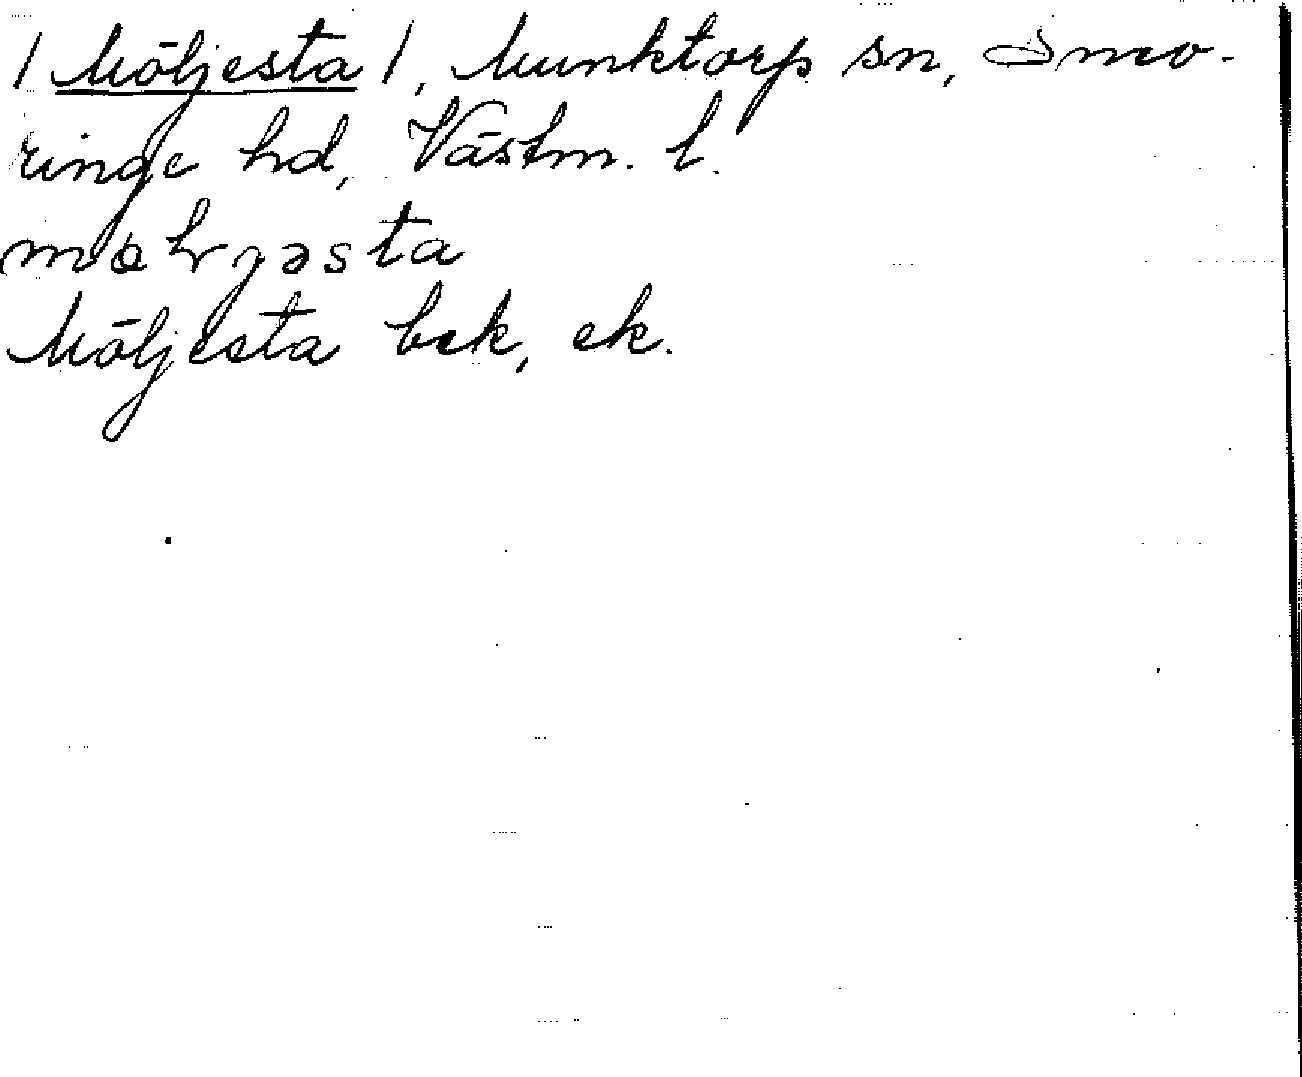 / Möljesta /, Munktorp sn, Snevringe hd, Västm. l.
Möljesta bek, ek.